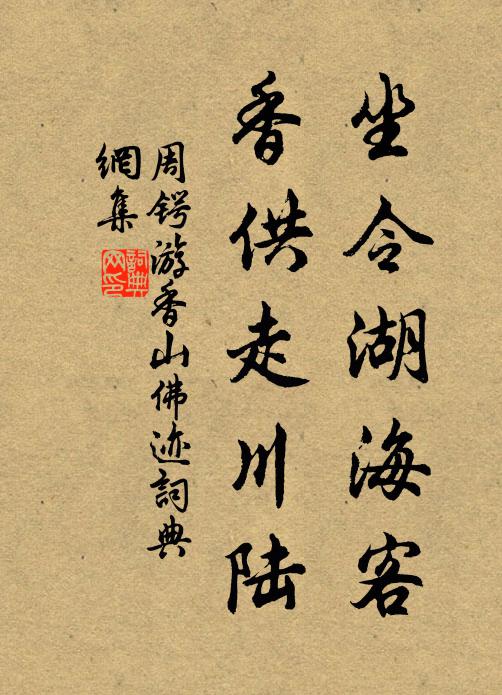 坐令湖海客
香供走川陆
周锷游香山佛迹詞典
網集
詞典
网印